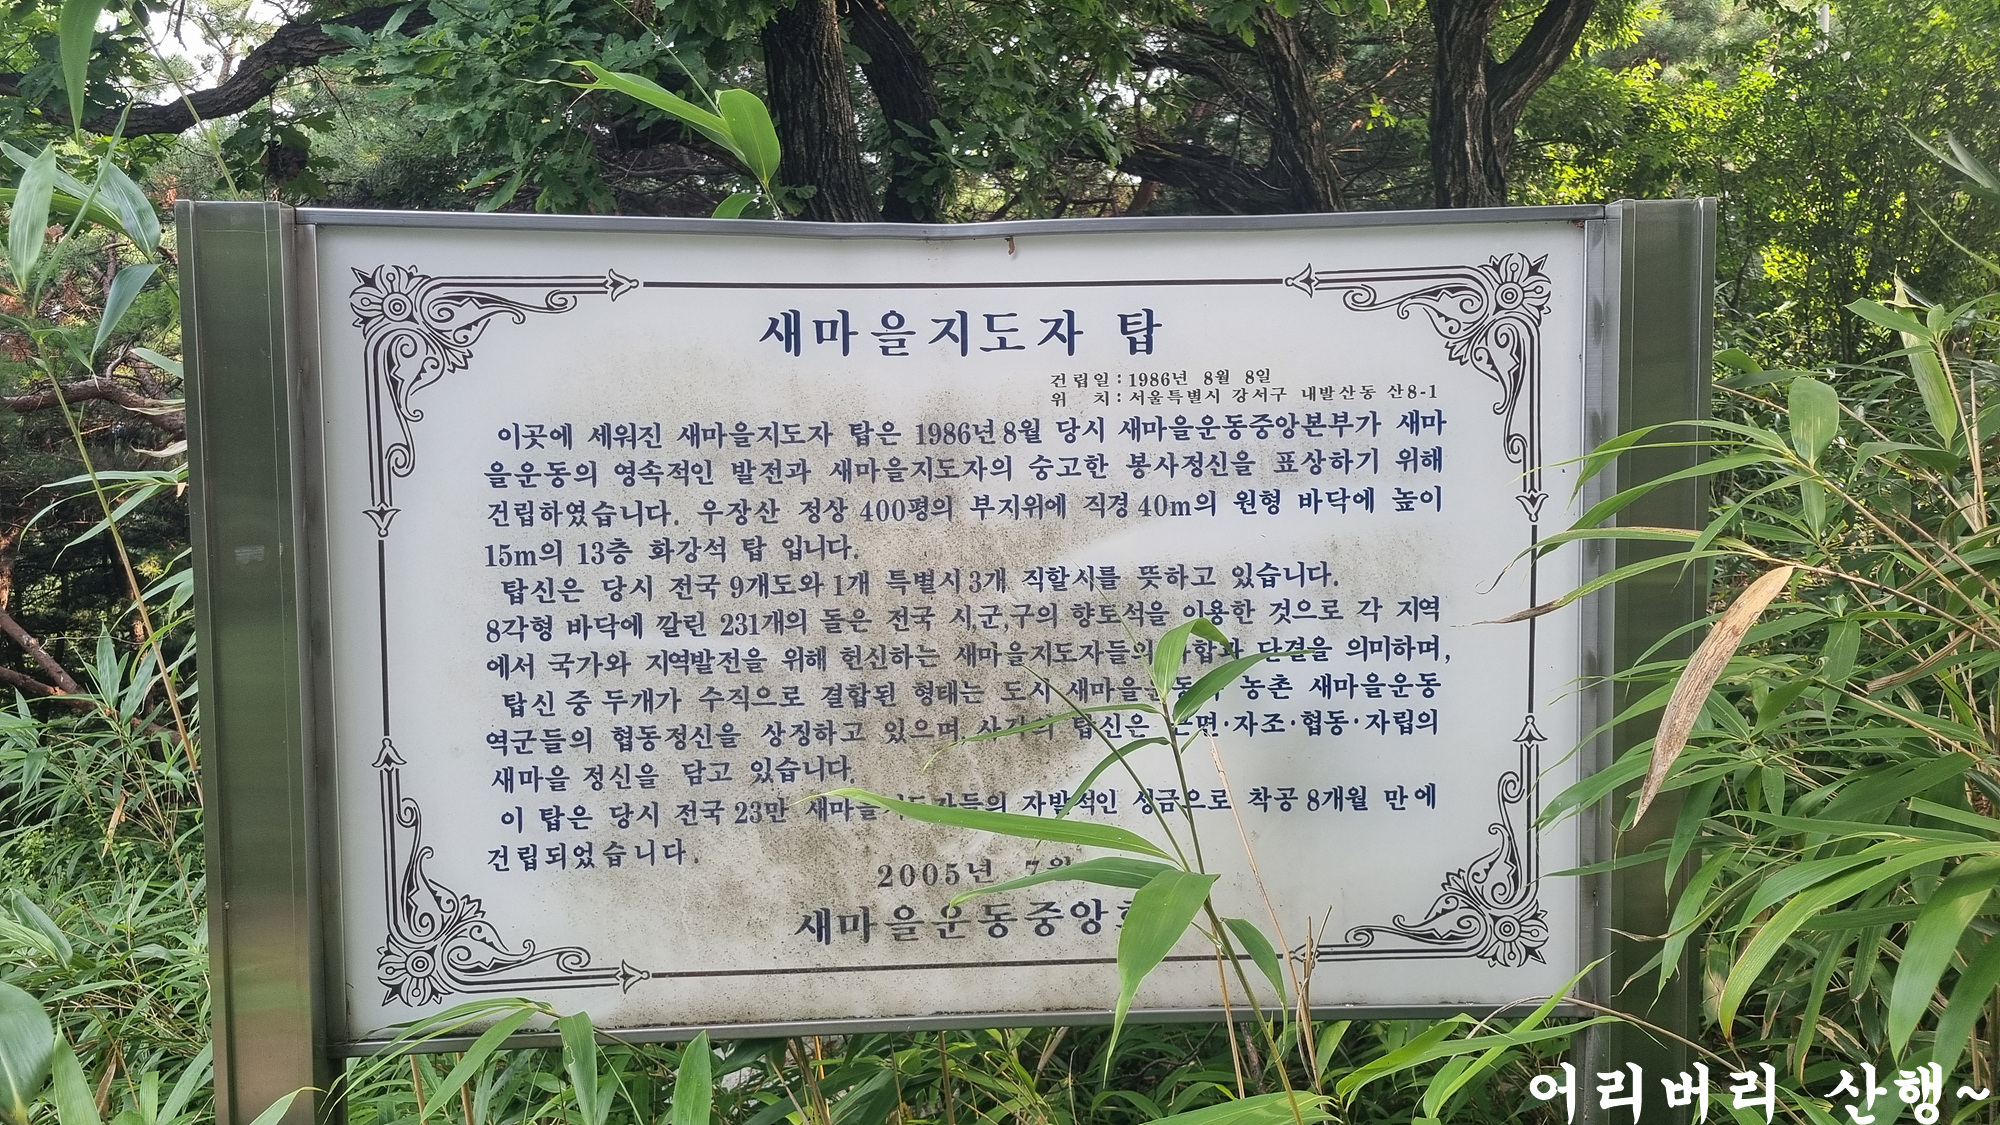 새마을지도자 탑
건립일 : 1986년 8월 8일
위 치 : 서울특별시 강서구 내발산동 산8-1
이곳에 세워진 새마을지도자 탑은 1986년 8월 당시 새마을운동중앙본부가 새마
을운동의 영속적인 발전과 새마을지도자의 숭고한 봉사정신을 표상하기 위해
건립하였습니다. 우장산 정상 400평의 부지위에 직경 40m의 원형 바닥에 높이
15m의 13층 화강석 탑 입니다.
탑신은 당시 전국 9개도와 1개 특별시 3개 직할시를 뜻하고 있습니다.
8각형 바닥에 깔린 231개의 돌은 전국 시,군,구의 향토석을 이용한 것으로 각 지역
에서 국가와 지역발전을 위해 헌신하는 새마을지도자들의 단결을 의미하며,
탑신 중 두개가 수직으로 결합된 형태는 도시 새마을운동과 농촌 새마을운동
역군들의 협동정신을 상징하고 있으며, 탑신은 근면·자조·협동·자립의
새마을 정신을 담고 있습니다.
이 탑은 당시 전국 23만 새마을지도자들의 자발적인 성금으로 착공 8개월 만에
건립되었습니다.
2005년 7월
새마을운동중앙회
어리버리 산행~